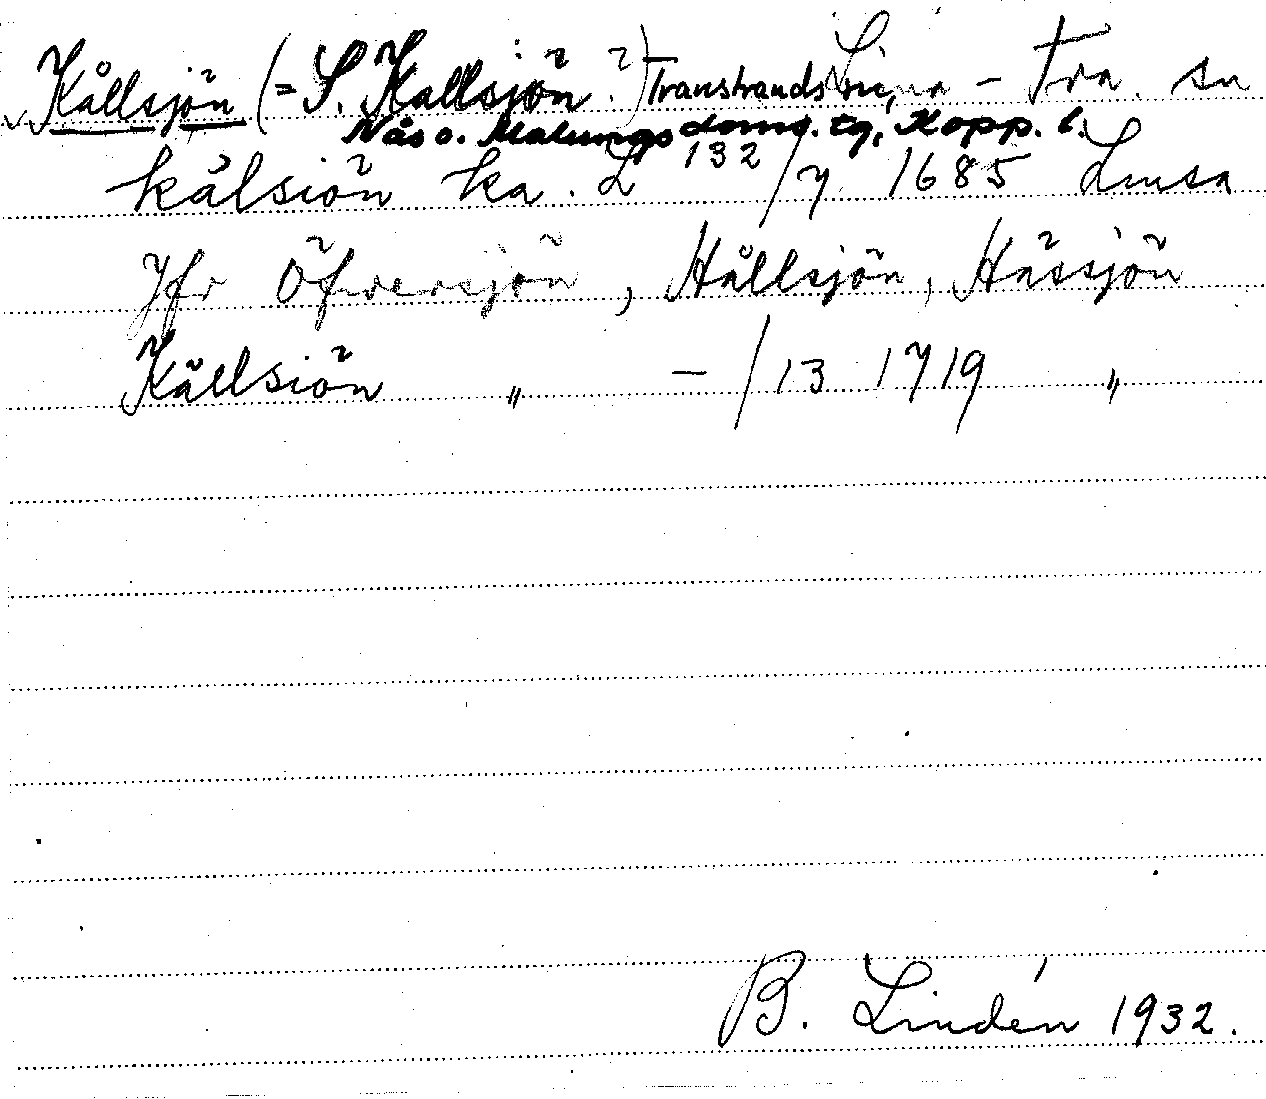 Kållsjön (= S. Kallsjön?) Transtrands sn, Lima – Tra. sn
Nås o. Malungs doms. tg, Kopp. l.
kålsiön ka. L 132/7 1685 Lmsa
Jfr Öfversjön, Hållsjön, Hässjön
Kållsiön " –/13 1719 "
B. Lindén 1932.